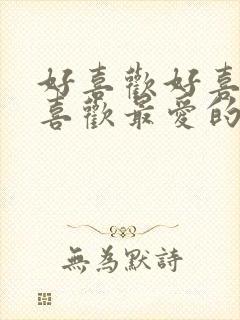 好喜歡好喜
喜歡最愛的
無為默詩